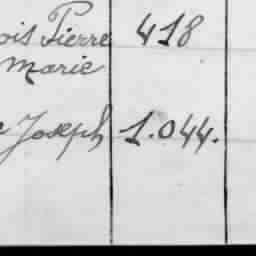 ois Pierre 418
Marie
Joseph 1.044.